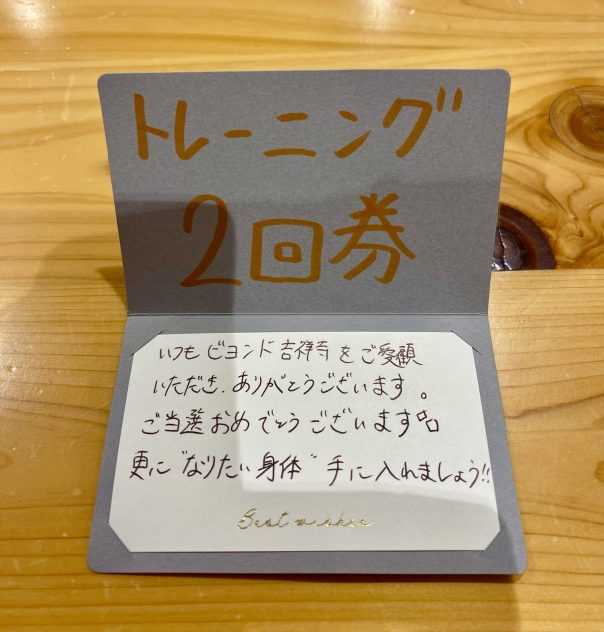 トレーニング
2回券
いつもビヨンド吉祥寺をご愛顧
いただき、ありがとうございます。
ご当選おめでとうございます
更に"なりたい身体"手に入れましょう!!
Best wishes